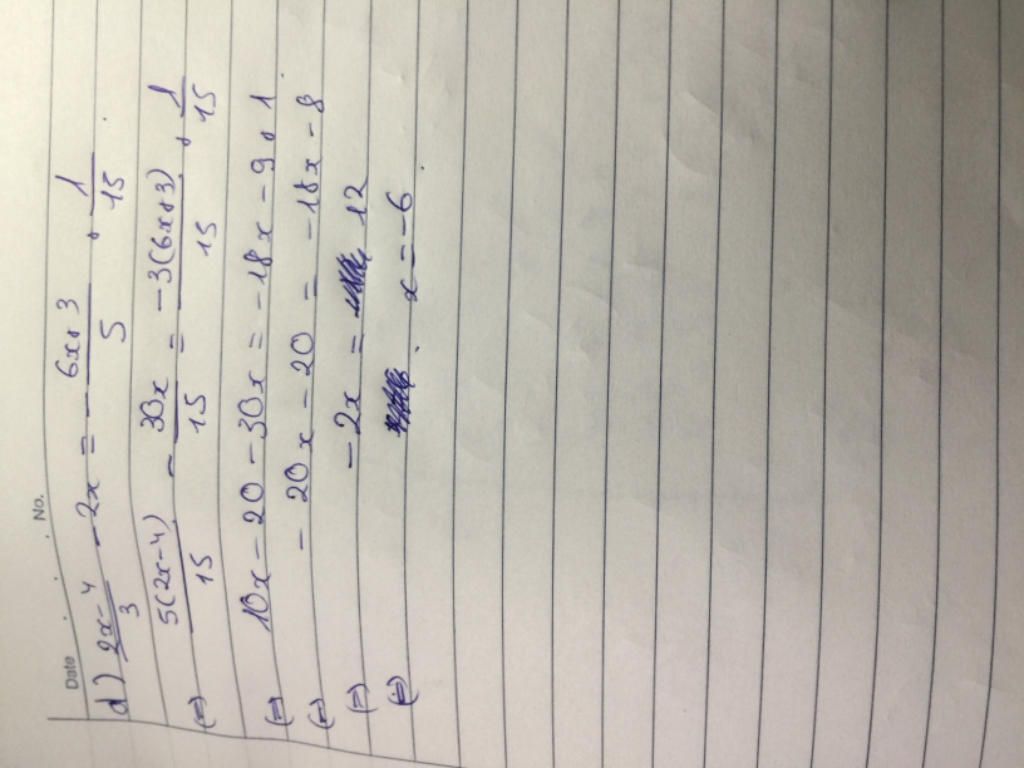 No.
Date
d) \frac{2x-4}{3} - 2x = - \frac{6x+3}{5} + \frac{1}{15}
(=) \frac{5(2x-4)}{15} - \frac{30x}{15} = \frac{-3(6x+3)}{15} + \frac{1}{15}
(=) 10x - 20 - 30x = -18x - 9 + 1
(=) - 20x - 20 = -18x - 8
(=) - 2x = 12
(=) x = -6